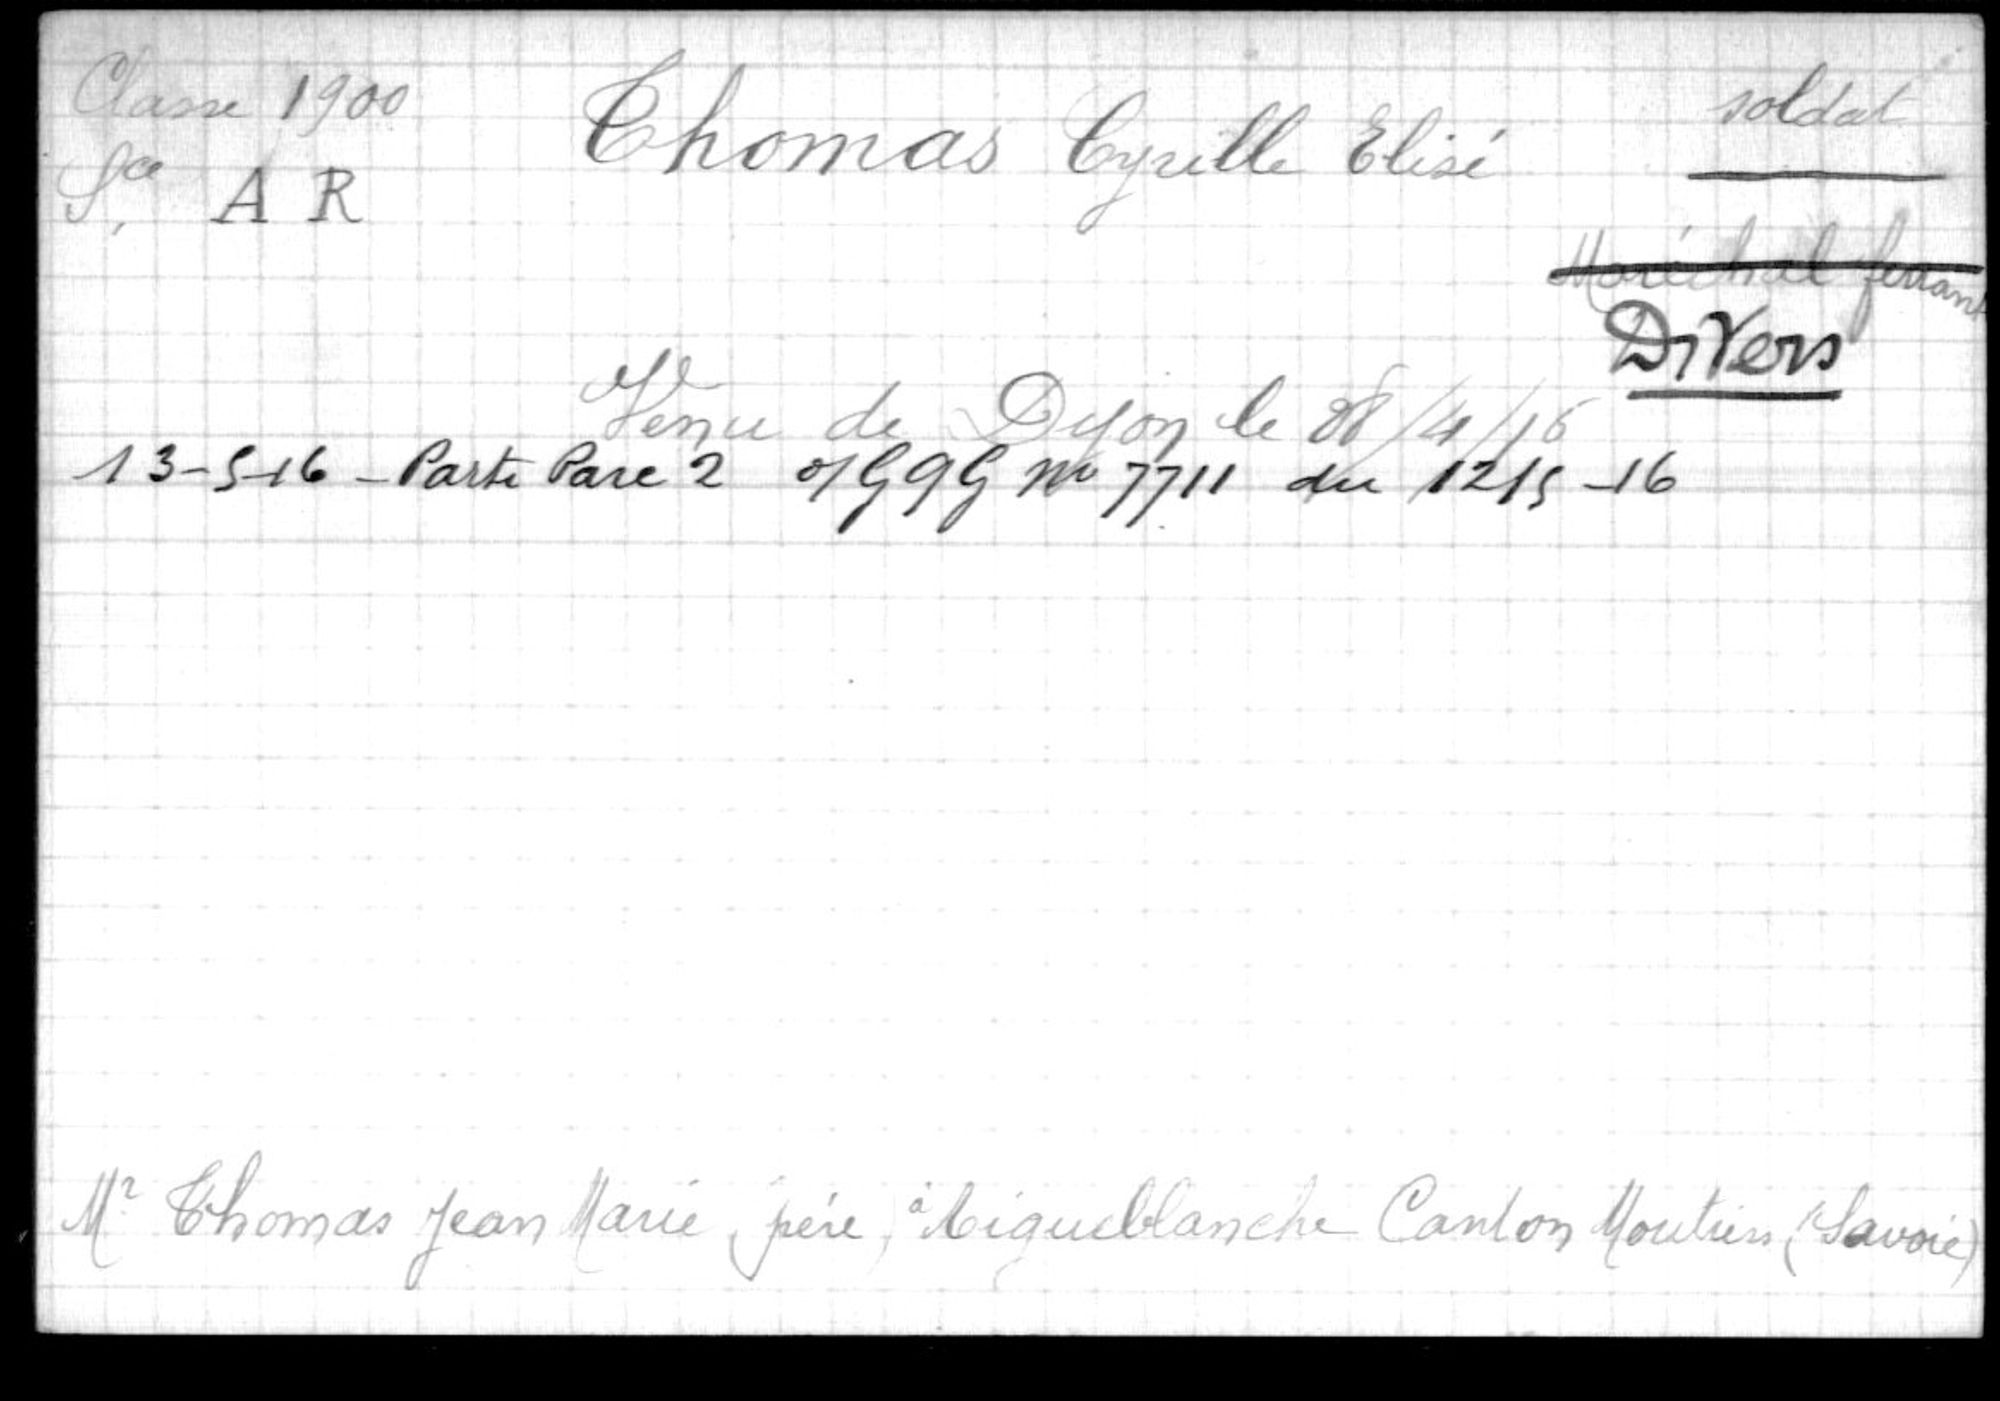 Classe 1900
Thomas Cyrille Elisé
soldat
Sce A R
Maréchal ferrant
Divers
Venu de Dijon le 28/4/16
13-5-16 - Parti Parc 2 o/ G Q G No 7711 du 12/5-16
Mr Thomas Jean Marie, père, à Aigueblanche Canton Moutiers (Savoie)